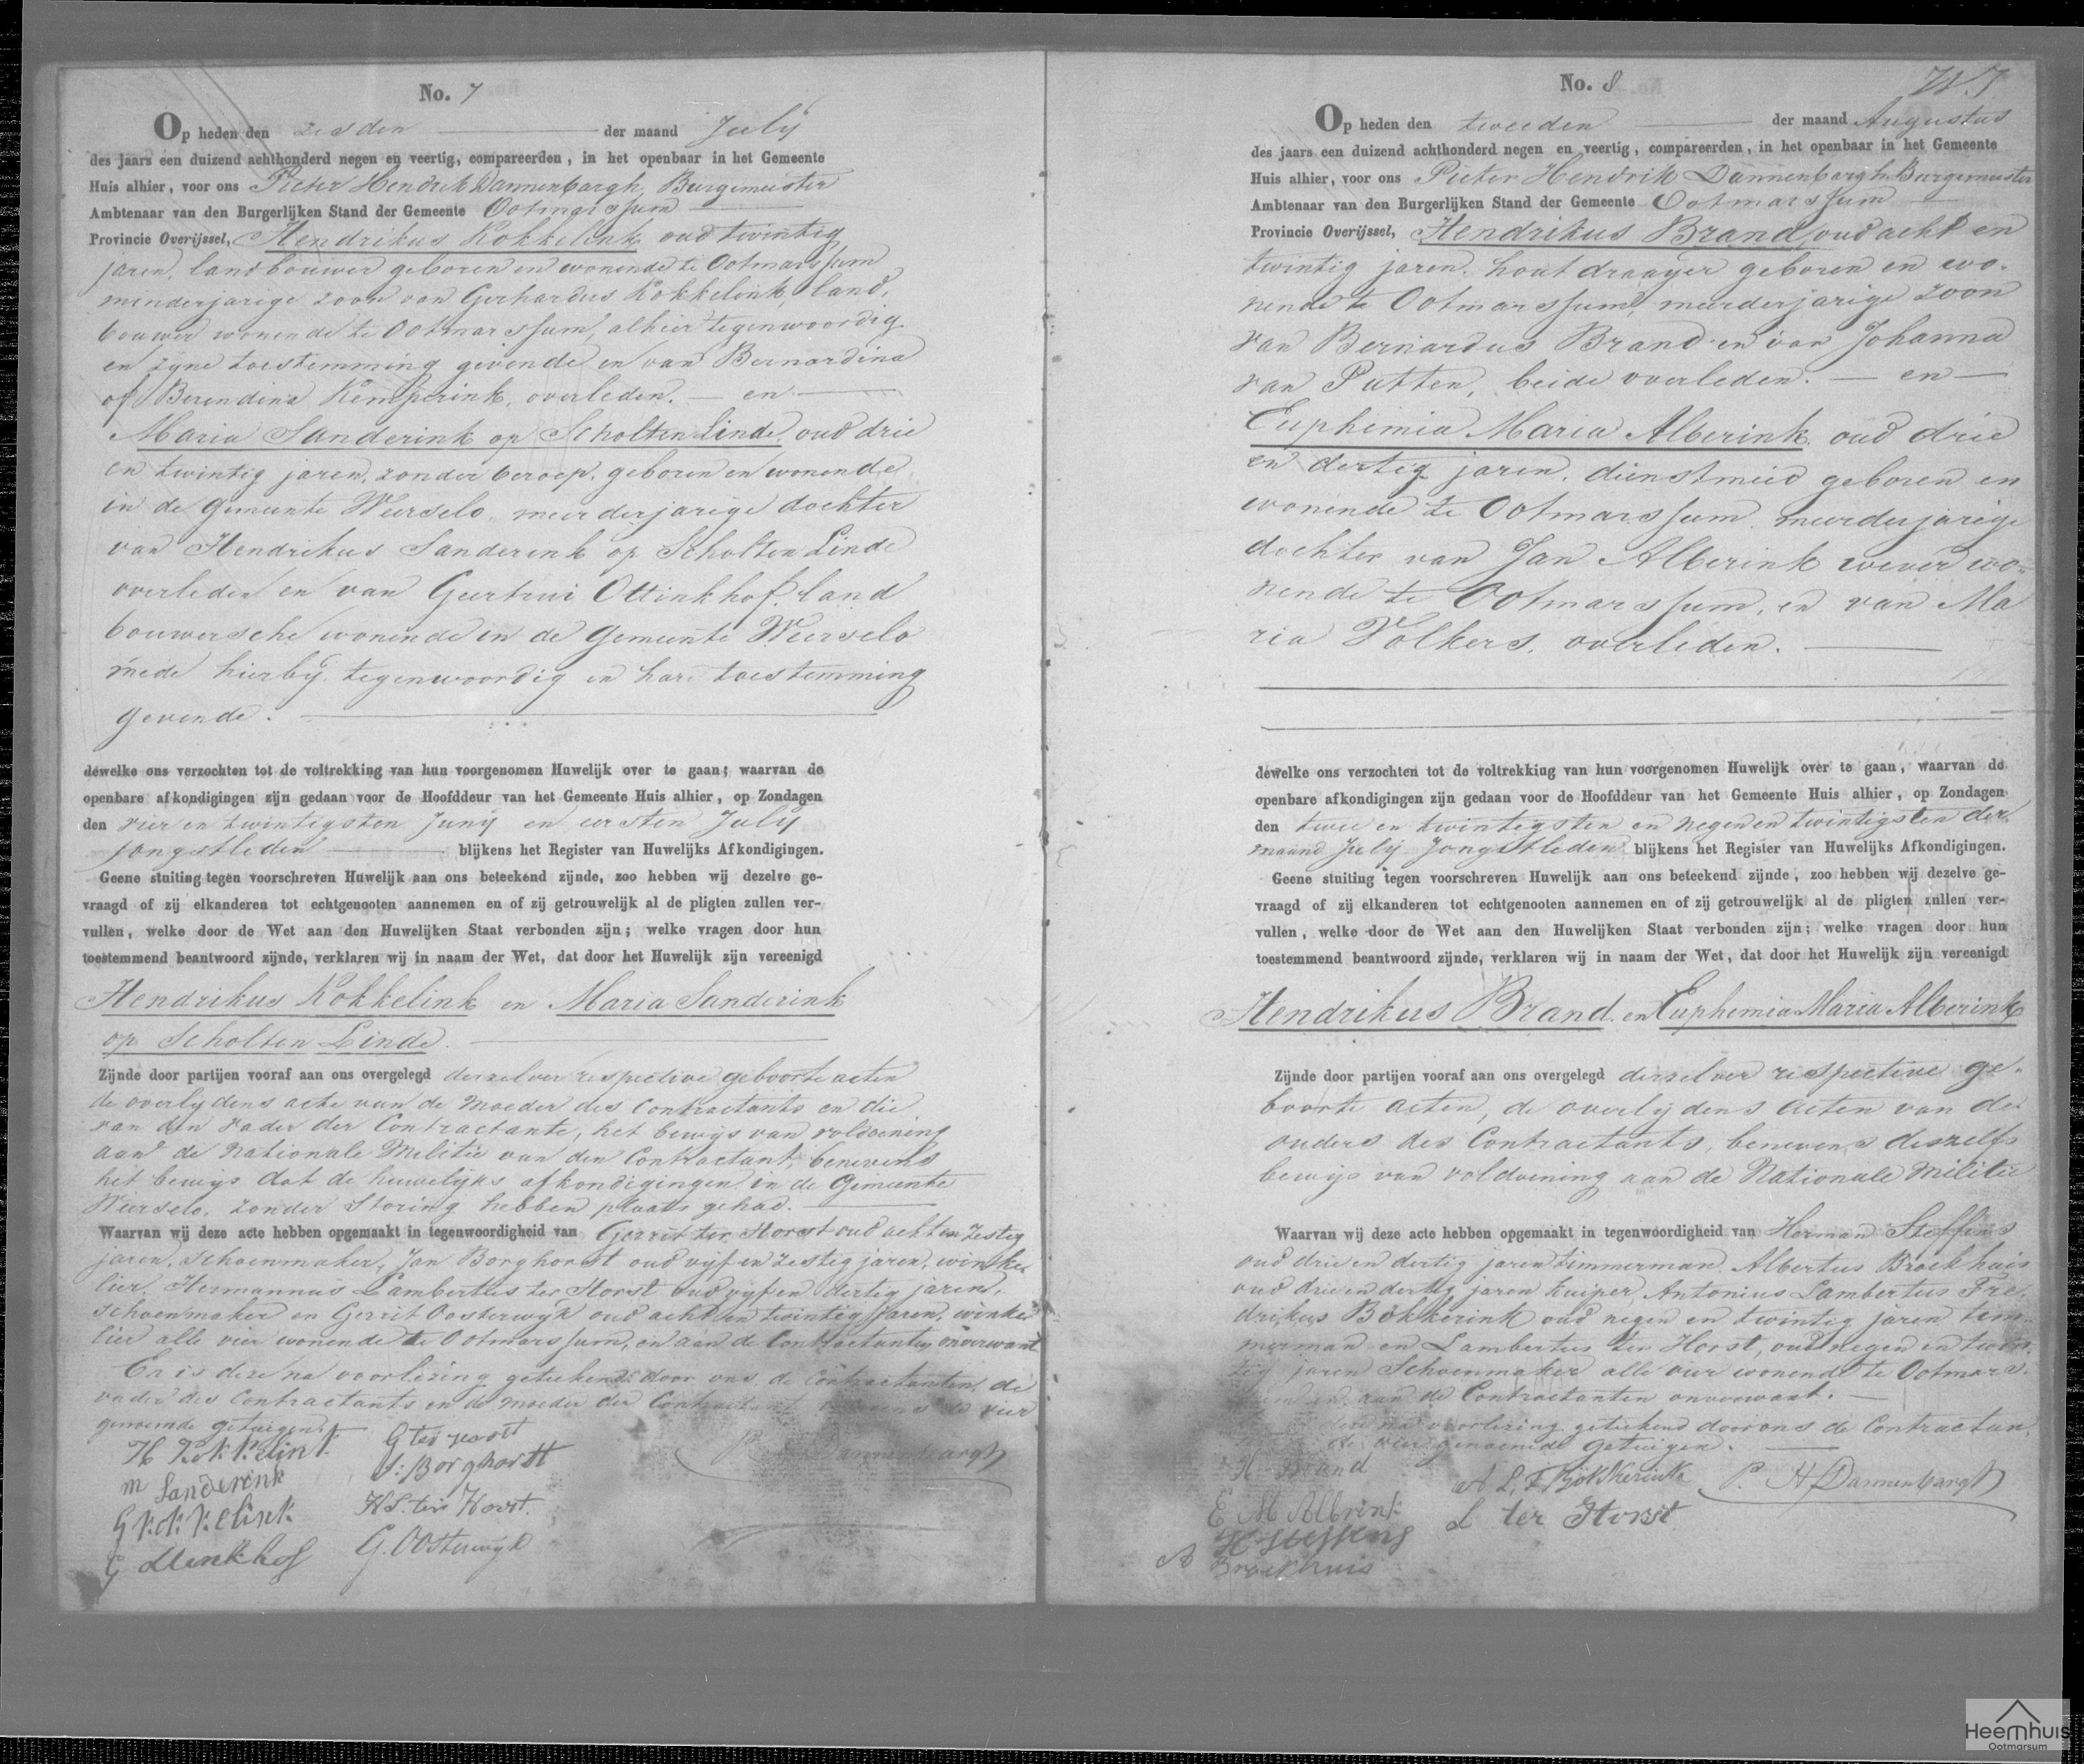 No. 7
Op heden den zesden der maand July
des jaars een duizend achthonderd negen en veertig, compareerden, in het openbaar in het Gemeente
Huis alhier, voor ons Pieter Hendrik Dannenbargh, Burgemeester
Ambtenaar van den Burgerlijken Stand der Gemeente Ootmarssum
Provincie Overijssel, Hendrikus Kokkelink oud twintig
jaren, landbouwer geboren en wonende te Ootmarssum
minderjarige zoon van Gerhardus Kokkelink, land,
bouwer wonende te Ootmarssum, alhier tegenwoordig
en zyne toestemming gevende en van Bernardina
of Berendina Kemperink, overleden. — en —
Maria Sanderink op Scholten Linde, oud drie
en twintig jaren, zonder beroep, geboren en wonende
in de gemeente Weerselo, meerderjarige dochter
van Hendrikus Sanderink op Scholten Linde
overleden en van Geertrui Ottinkhof, land
bouwersche wonende in de gemeente Weerselo
mede hierby tegenwoordig en hare toestemming
gevende.
dewelke ons verzochten tot de voltrekking van hun voorgenomen Huwelijk over te gaan; waarvan de
openbare afkondigingen zijn gedaan voor de Hoofddeur van het Gemeente Huis alhier, op Zondagen
den vier en twintigsten Juny en eersten July
jongstleden blijkens het Register van Huwelijks Afkondigingen.
Geene stuiting tegen voorschreven Huwelijk aan ons beteekend zijnde, zoo hebben wij dezelve ge-
vraagd of zij elkanderen tot echtgenooten aannemen en of zij getrouwelijk al de pligten zullen ver-
vullen, welke door de Wet aan den Huwelijken Staat verbonden zijn; welke vragen door hun
toestemmend beantwoord zijnde, verklaren wij in naam der Wet, dat door het Huwelijk zijn vereenigd
Hendrikus Kokkelink en Maria Sanderink
op Scholten Linde.
Zijnde door partijen vooraf aan ons overgelegd derzelver respective geboorte acten
de overlydens acte van de moeder des Contractants en die
van den vader der Contractante, het bewys van voldoening
aan de Nationale Militie van den Contractant, benevens
het bewys dat de huwelyks afkondigingen in de Gemeente
Weerselo, zonder storing hebben plaats gehad.
Waarvan wij deze acte hebben opgemaakt in tegenwoordigheid van Gerrit ter Horst oud acht en zestig
jaren, schoenmaker, Jan Borghorst oud vyf en zestig jaren, winke
lier, Hermannus Lambertus ter Horst oud vyf en dertig jaren,
schoenmaker en Gerrit Oosterwyk oud acht en twintig jaren, winke
lier alle vier wonende te Ootmarssum, en aan de Contractanten onverwant
En is deze na voorlezing geteekend door ons de Contractanten, de
vader des Contractants en de moeder der Contractant benevens de vier
genoemde getuigen.
H Kokkelink G ter Horst
m Sanderink J: Borghorst P. H. Dannenbargh
G Kokkelink H L. ter Horst.
G Ottinkhof G. Oosterwyk
No. 8
Op heden den tweeden der maand Augustus
des jaars een duizend achthonderd negen en veertig, compareerden, in het openbaar in het Gemeente
Huis alhier, voor ons Pieter Hendrik Dannenbargh Burgemeester
Ambtenaar van den Burgerlijken Stand der Gemeente Ootmarssum
Provincie Overijssel, Hendrikus Brand, oud acht en
twintig jaren, houtdraayer geboren en wo-
nende te Ootmarssum, meerderjarige zoon
van Bernardus Brand en van Johanna
van Putten, beide overleden. — en —
Euphemia Maria Alberink, oud drie
en dertig jaren, dienstmeid geboren en
wonende te Ootmarssum meerderjarige
dochter van Jan Alberink wever wo-
nende te Ootmarssum, en van Ma
ria Volkers, overleden.
dewelke ons verzochten tot de voltrekking van hun voorgenomen Huwelijk over te gaan, waarvan de
openbare afkondigingen zijn gedaan voor de Hoofddeur van het Gemeente Huis alhier, op Zondagen
den twee en twintigsten en negen en twintigsten der
maand July jongstleden blijkens het Register van Huwelijks Afkondigingen.
Geene stuiting tegen voorschreven Huwelijk aan ons beteekend zijnde, zoo hebben wij dezelve ge-
vraagd of zij elkanderen tot echtgenooten aannemen en of zij getrouwelijk al de pligten zullen ver-
vullen, welke door de Wet aan den Huwelijken Staat verbonden zijn; welke vragen door hun
toestemmend beantwoord zijnde, verklaren wij in naam der Wet, dat door het Huwelijk zijn vereenigd
Hendrikus Brand. en Euphemia Maria Alberink
Zijnde door partijen vooraf aan ons overgelegd derzelver respective ge-
boorte acten, de overlydens acten van de
ouders des Contractants, benevens deszelfs
bewys van voldoening aan de Nationale Militie
Waarvan wij deze acte hebben opgemaakt in tegenwoordigheid van Herman Steffens
oud drie en dertig jaren timmerman, Albertus Broekhuis
oud drie en dertig jaren kuiper, Antonius Lambertus Fre-
drikus Bökkerink oud negen en twintig jaren tim-
merman en Lambertus ter Horst, oud negen en twin-
tig jaren Schoenmaker alle vier wonende te Ootmars-
sum en aan de Contractanten onverwant.
deze na voorlezing geteekend door ons de Contractan,
de vier genoemde getuigen.
H Brand A. L. F. Bökkerink P. H Dannenbargh
E M Albrink L ter Horst
H Steffens
A Broekhuis
Heemhuis
Ootmarsum